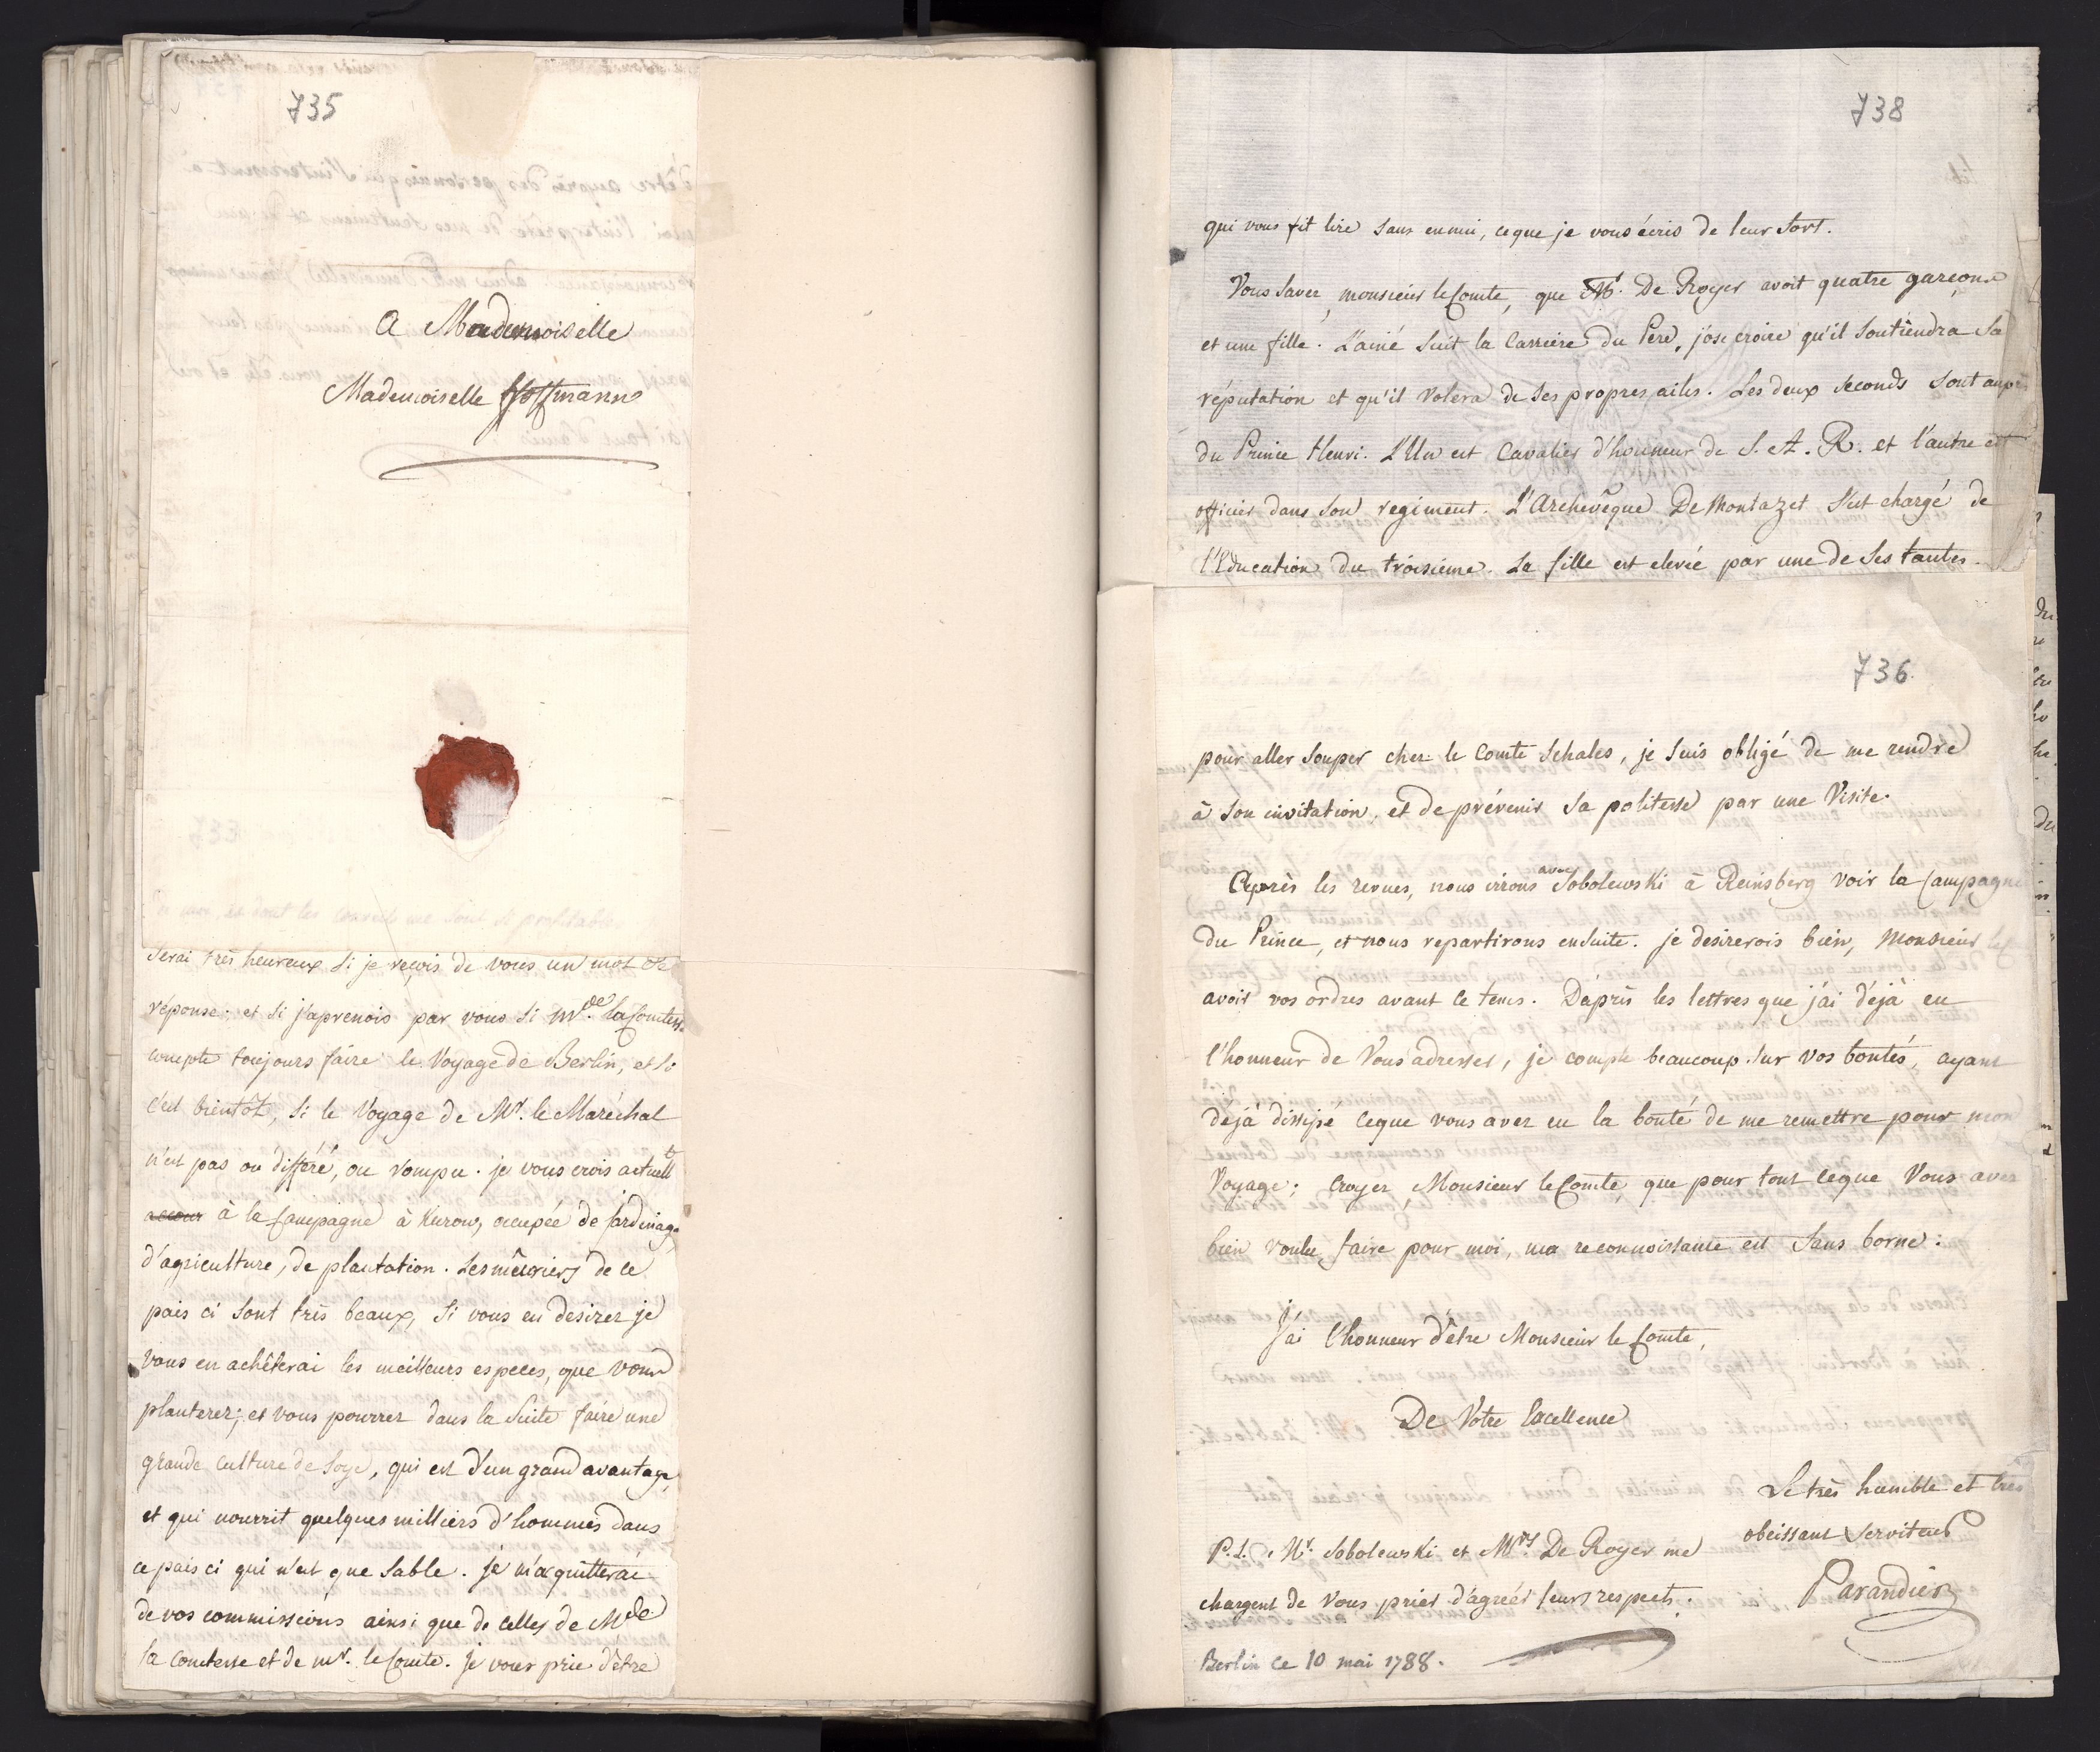 735
A Mademoiselle
Mademoiselle Hoffmann
serai très heureux si je reçois de vous un mot de
réponse; et si j'aprenois par vous si Mde. la Comtesse
compte toujours faire le Voyage de Berlin, et si
c'est bientôt, si le Voyage de Mr. le Maréchal
n'est pas ou différé, ou rompu. je vous crois actuellt
à la Campagne à Kurow, occupée de jardinage,
d'agriculture, de plantation. Les mûriers de ce
païs ci sont très beaux, si vous en desirez je
vous en achêterai les meilleurs especes, que vous
planterez; et vous pourrez dans la suite faire une
grande culture de soye, qui est d'un grand avantage,
et qui nourrit quelques milliers d'hommes dans
ce païs ci qui n'est que sable. je m'acquitterai
de vos commissions ainsi que de celles de Mde
la Comtesse et de mr. le Comte. je vous prie d'être
738
qui vous fit lire sans ennui, ceque je vous écris de leur sort.
Vous savez, monsieur le Comte, que Mr. De Royer avoit quatre garçons
et une fille. L'ainé suit la Carriere du Pere, j'ose croire qu'il soutiendra sa
réputation et qu'il volera de ses propres ailes. Les deux seconds sont auprès
du Prince Henri. L'Un est Cavalier d'honneur de S. A. R. et l'autre est
officier dans son regiment. L'Archevêque De Montazet s'est chargé de
l'Education du troisieme. La fille est elevée par une de ses tantes.
736
pour aller souper chez le Comte Schales, je suis obligé de me rendre
à son invitation, et de prévenir sa politesse par une Visite.
Après les revues, nous irons avec Sobolewski à Reinsberg voir la Campagne
du Prince, et nous repartirons ensuite. je desirerois bien, Monsieur le C
avoir vos ordres avant ce tems. D'après les lettres que j'ai déjà eu
l'honneur de Vous adresser, je compte beaucoup sur vos bontés, ayant
déjà dissipé ceque vous avez eu la bonté de me remettre pour mon
Voyage; Croyez, Monsieur le Comte, que pour tout ceque Vous avez
bien voulu faire pour moi, ma reconnoissance est sans borne:
J'ai l'honneur d'être Monsieur le Comte,
De Votre Excellence
Le très humble et très
obeissant Serviteur
Parandier
P.S. Mr. Sobolewski et Mrs De Royer me
chargent de Vous prier d'agréer leurs respects.
Berlin ce 10 mai 1788.